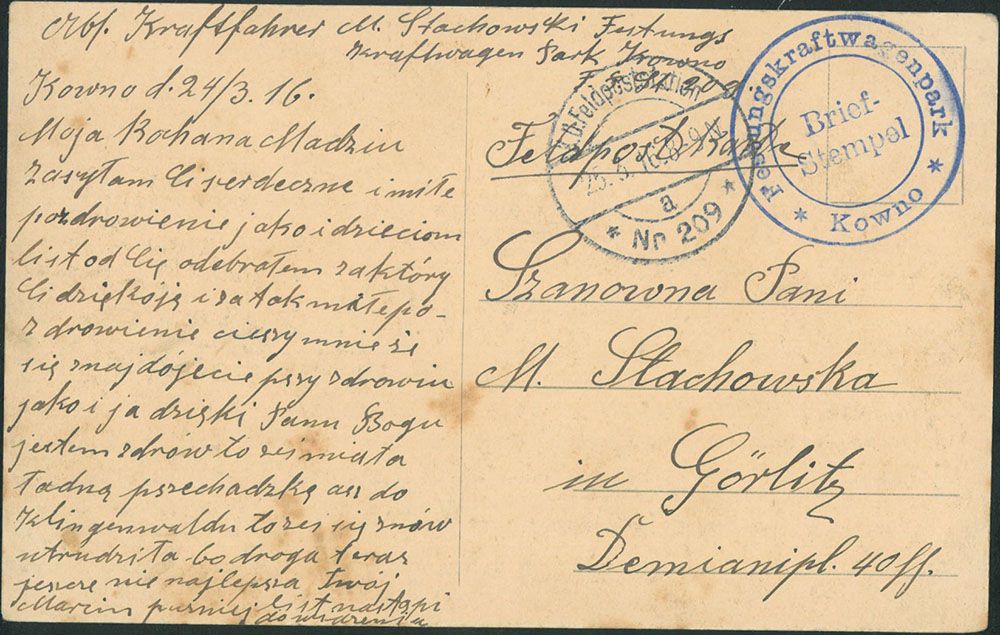 Abs. Kraftfahrer M. Stachowski Festungs
Kraftwagen Park Kowno
Kowno d. 24/3. 16.
Moja Kochana Madziu
Zasyłam Ci serdeczne i miłe
pozdrowienie jako i dzieciom
list od Cię odebrałem za który
Ci dziękóją i za tak miłe po-
zdrowienie cieszy mnie że
się znajdójecie pszy zdrowiu
jako i ja dzięki Panu Bogu
jestem zdrów to żeś miała
ładną pszechadzkę asz do
Klingenwaldu to żeś się znów
utrudziła bo droga teraz
jeszcze nie najlepsza Twój
Marcin puzniej list nastąpi
do widzenia
Feldpost Karte
K.D. Feldpoststation
25.3.16. 8-9 N.
a
* Nr. 209 *
Festungskraftwagenpark
Brief-
Stempel
* Kowno *
Szanowna Pani
M. Stachowska
in Görlitz
Demianipl. 40 II.